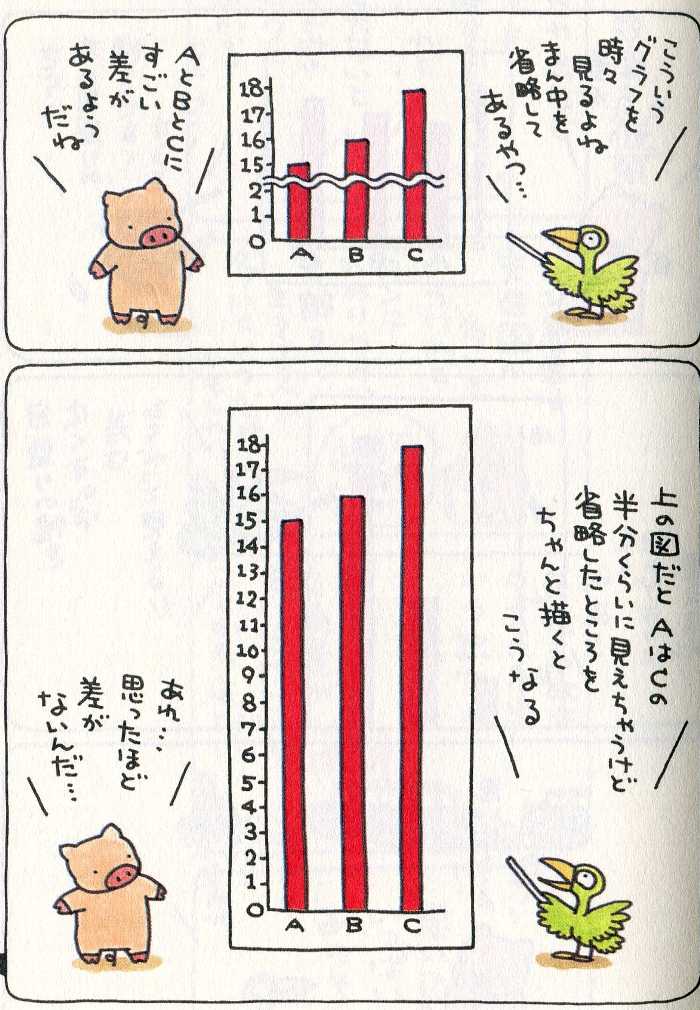 こういう
グラフを
時々
見るよね
まん中を
省略して
あるやつ…
18
17
16
15
2
1
0
A B C
AとBとCに
すごい
差が
あるよう
だね
上の図だと AはCの
半分くらいに見えちゃうけど
省略したところを
ちゃんと描くと
こうなる
18
17
16
15
14
13
12
11
10
9
8
7
6
5
4
3
2
1
0
A B C
あれ…
思ったほど
差が
ないんだ…